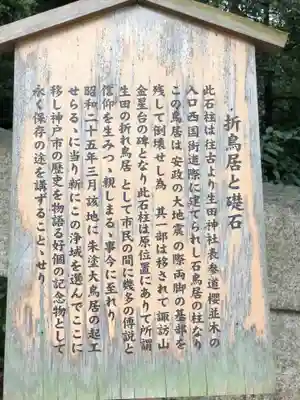 折鳥居と礎石
此石柱は往古より生田神社表参道櫻並木の
入口西国街道際に建てられし石鳥居の柱なり
この鳥居は安政の大地震の際両脚の基部を
残して倒壊せし為 其一部は移されて諏訪山
金星台の碑となり此石柱は原位置にありて所謂
生田の折れ鳥居として市民の間に幾多の傳説と
信仰を生みつゝ親しまるゝ事今に至れり
昭和二十五年三月該地に朱塗大鳥居の起工
せらるゝに当り新にこの浄域を選んでここに
移し神戸市の歴史を物語る好個の記念物として
永く保存の途を講ずることゝせり